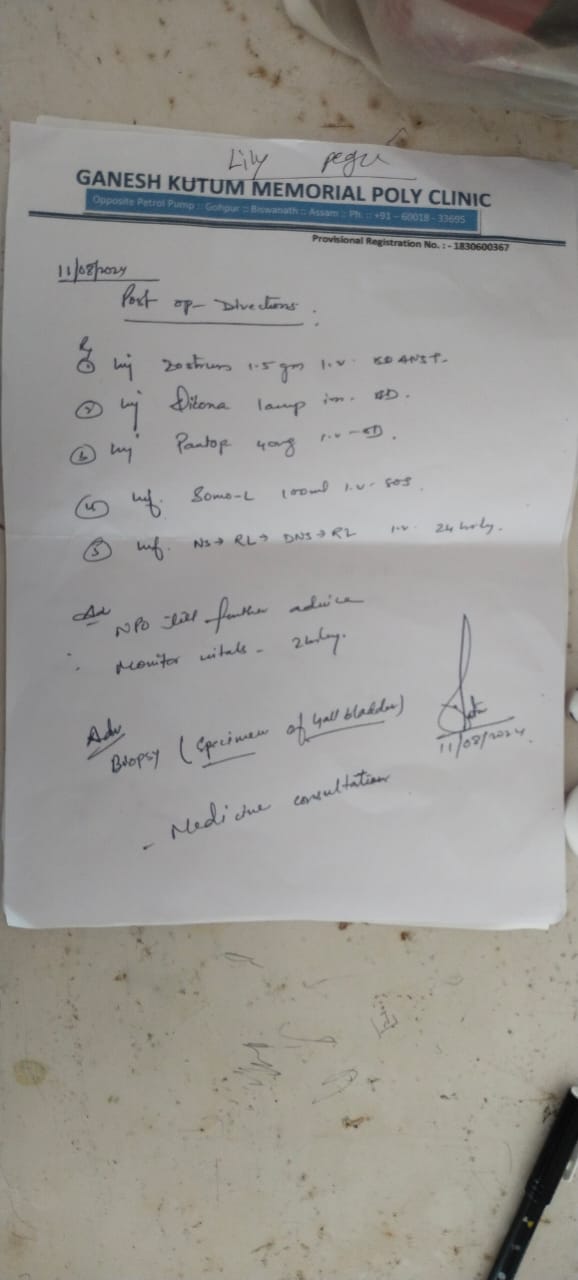 Lily pegu
GANESH KUTUM MEMORIAL POLY CLINIC
Opposite Petrol Pump :: Gohpur :: Biswanath :: Assam :: Ph. :: +91 – 60018 - 33695
Provisional Registration No. : - 1830600367
11/08/2024
Post op- Directions.
① Inj 1.5 gm I.V. ANST.
② Inj Dilona 1amp im. BD.
③ Inj Pantop 40mg I.V - OD.
④ Inf. Somo-L 100ml I.V. SOS.
⑤ Inf. NS→ RL→ DNS→ RL I.V. 24 hrly.
NPO till further advice
Monitor vitals - 2hrly.
Adv
Biopsy (Specimen of Gall bladder)
11/08/2024.
- Medicine consultation